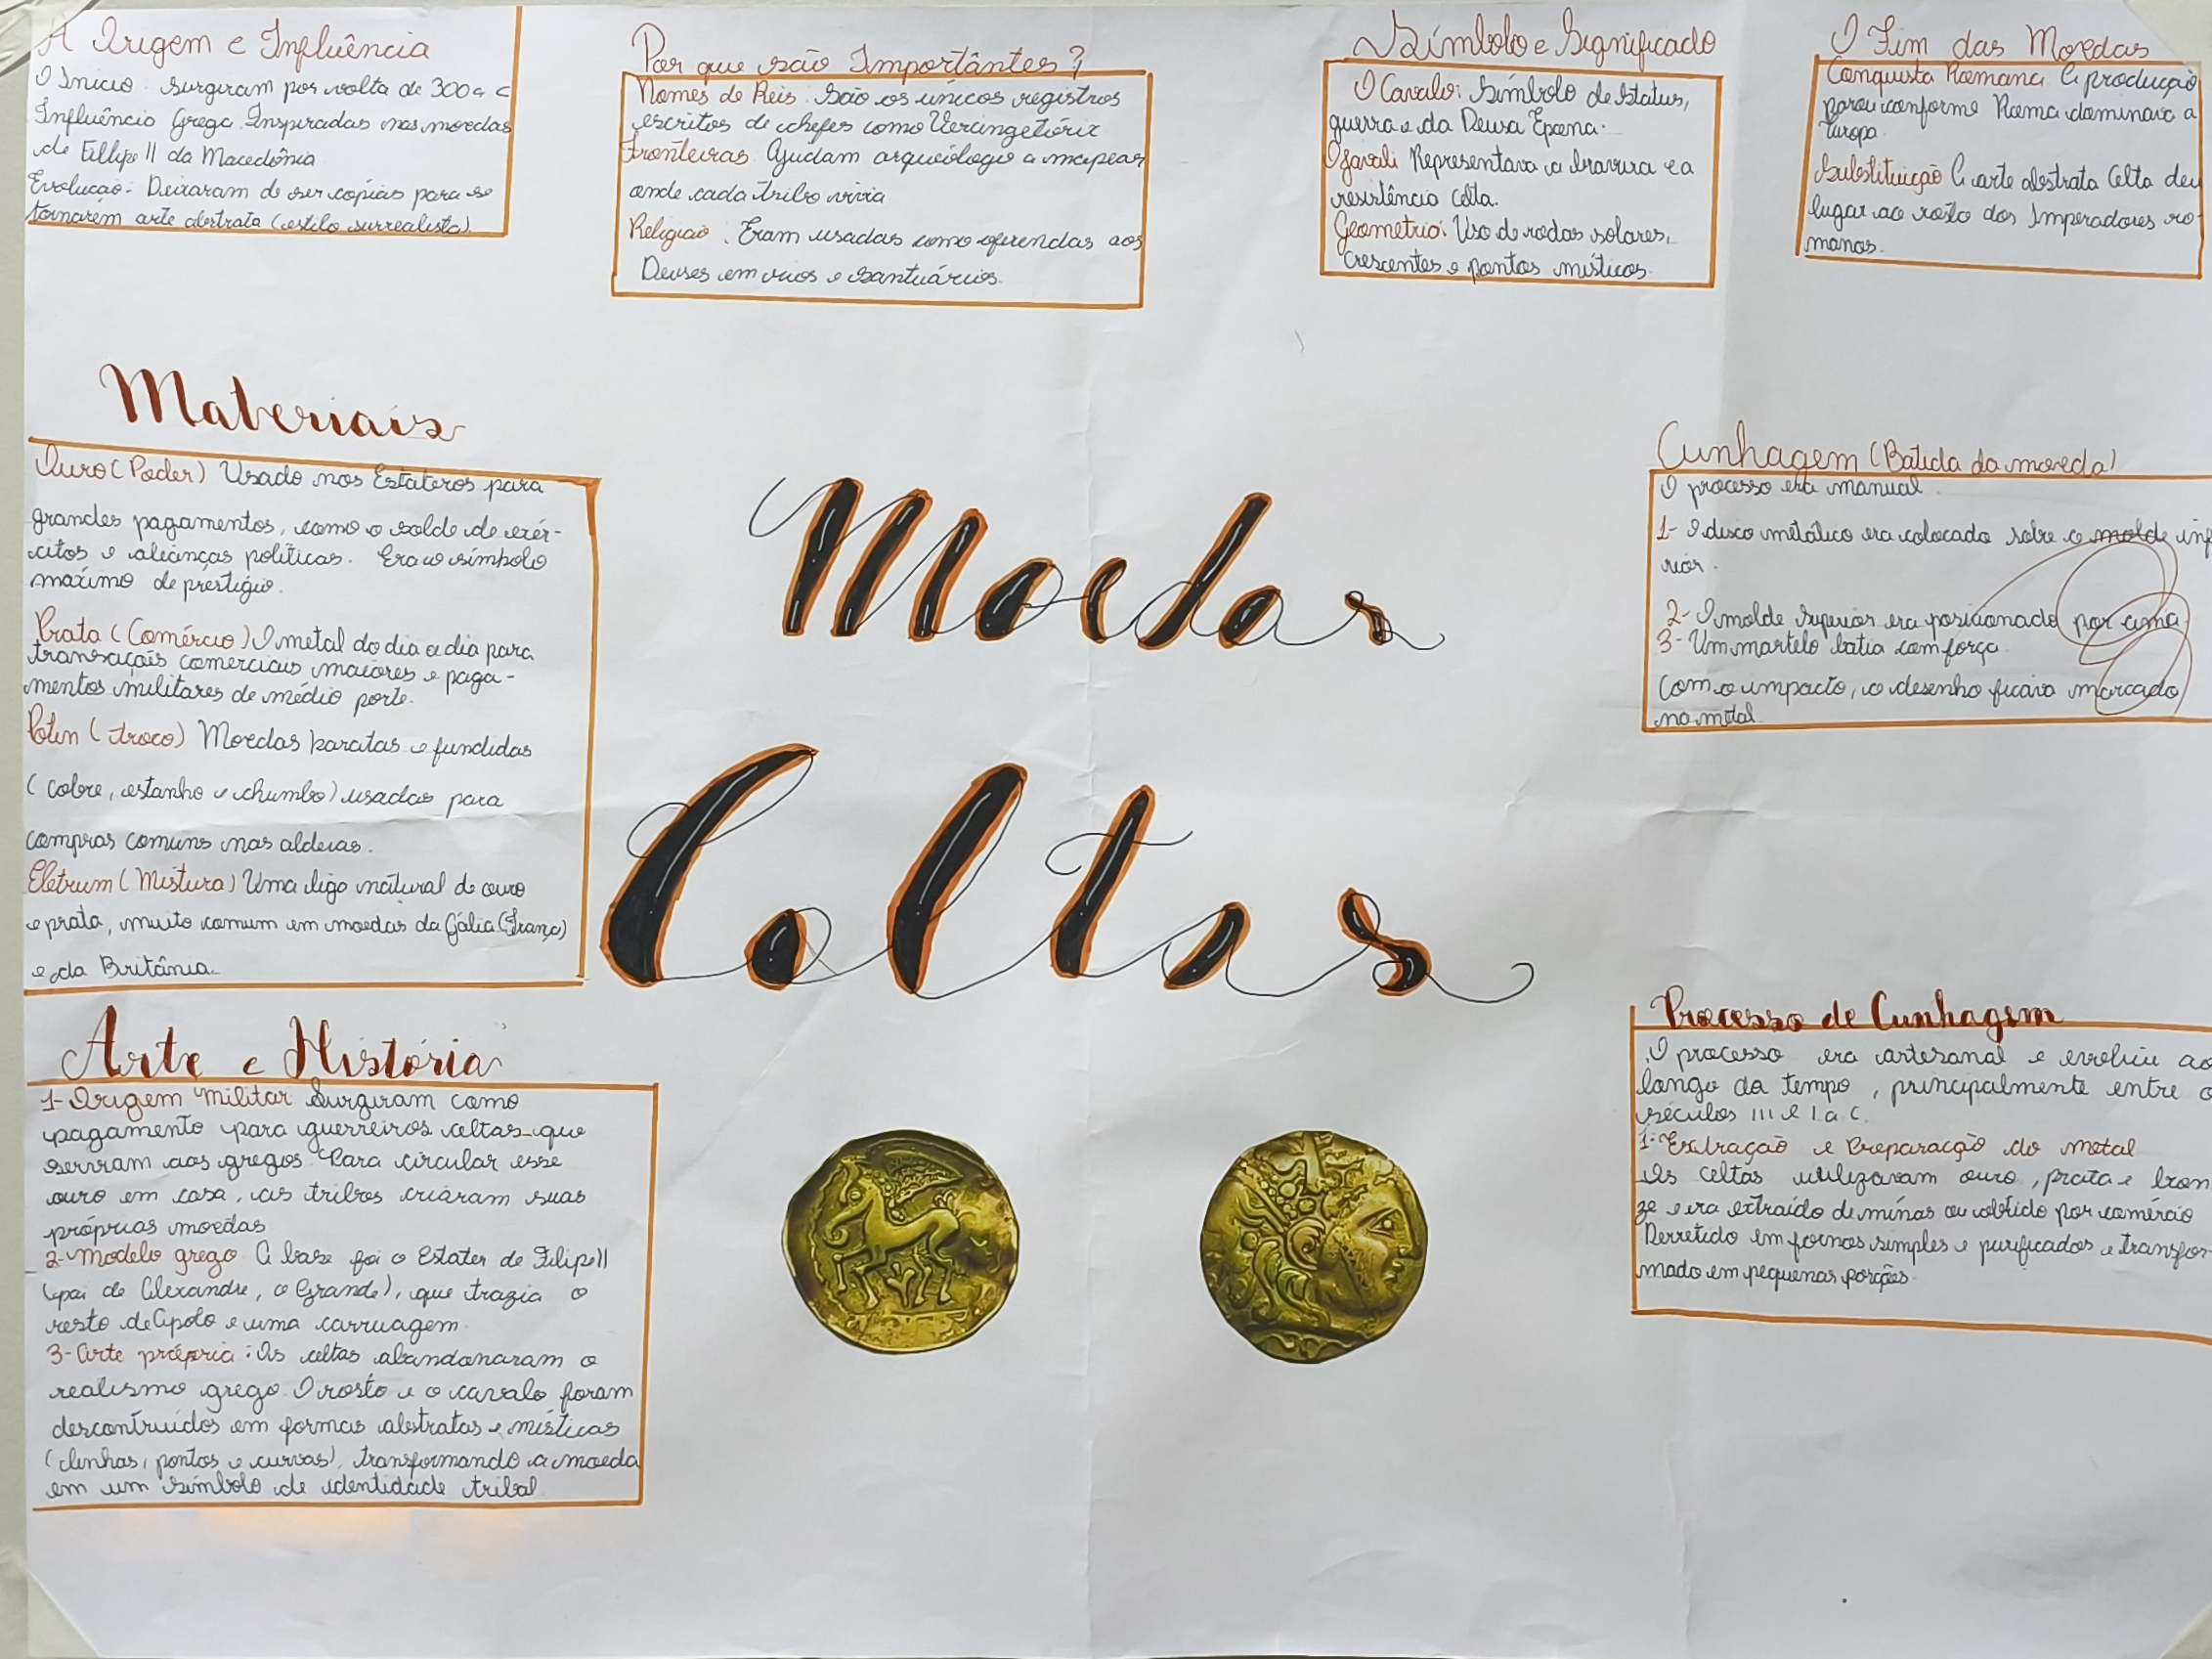 A Origem e Influência
O Início: Surgiram por volta de 300 a C
Influência Grega. Inspiradas nas moedas
de Fillipe II da Macedônia
Evolução: Deixaram de ser copias para se
tornarem arte abstrata (estilo surrealista)
Por que são Importântes?
Nomes de Reis. São os únicos registros
escritos de chefes como Vercingetórix
Fronteiras Ajudam arqueólogo a mapear
onde cada tribo vivia
Religião. Eram usadas como oferendas aos
Deuses em rios e Santuários.
Símbolo e Significado
O Cavalo: Símbolo de Status,
guerra e da Deusa Epona.
O Javali Representava a bravura e a
resistência celta.
Geometria: Uso de rodas solares,
crescentes e pontos místicos.
O Fim das Moedas
Conquista Romana A produção
parou conforme Roma dominava a
Europa.
Substituição A arte abstrata Celta deu
lugar ao rosto dos Imperadores ro-
manos.
Materiais
Ouro (Poder) Usado nos Estateros para
grandes pagamentos, como o soldo de exér-
citos e alianças políticas. Era o símbolo
maxímo de prestígio.
Prata (Comércio) O metal do dia a dia para
transaçais comerciais maiores e paga-
mentos militares de médio porte.
Potin (troco) Moedas baratas e fundidas
(cobre, estanho e chumbo) usadas para
compras comuns nas aldeias.
Eletrum (Mistura) Uma liga natural de ouro
e prata, muito comum em moedas da Gália (França)
e da Britânia.
Moedas
Celtas
Cunhagem (Batida da moeda)
O processo era manual.
1- O disco metálico era colocado sobre o molde infe
rior.
2- O molde Superior era posicionado por cima.
3- Um martelo batia com força.
Com o impacto, o desenho ficava marcado
no metal.
Arte e História
1- Origem Militar Surgiram como
pagamento para guerreiros celtas que
serviram aos gregos. Para circular esse
ouro em casa, as tribos criaram suas
próprias moedas
2- Modelo grego A base foi o Estater de Filipe II
(pai de Alexandre, o Grande), que trazia o
rosto de Apolo e uma carruagem
3- Arte própria: Os celtas abandonaram o
realismo grego. O rosto e o cavalo foram
descontruídos em formas abstratas e místicas
(linhas, pontos e curvas), transformando a moeda
em um símbolo de identidade tribal.
Processo de Cunhagem
O processo era artesanal e evoluiu ao
longo da tempo, principalmente entre o
séculos III e I. a C.
1: Extração e Preparação do metal
Os celtas utilizavam ouro, prata e bron
ze e era extraído de minas ou obtido por comércio
Derretido em fornos simples e purificados e transfor-
mado em pequenas porções.